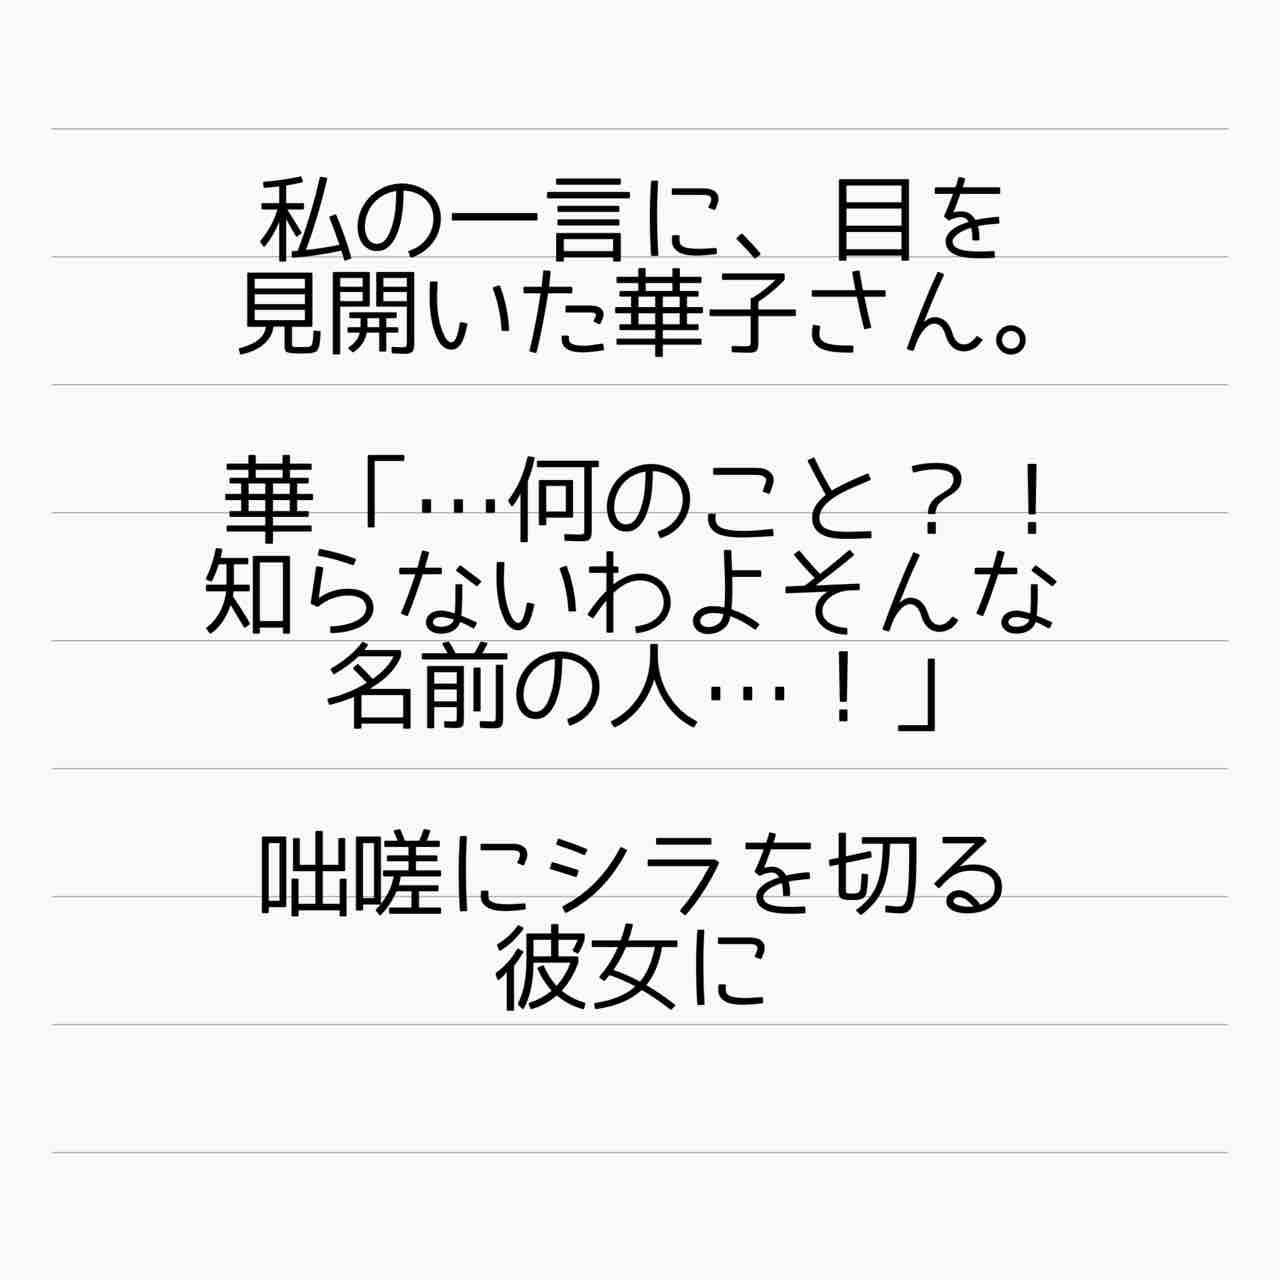 私の一言に、目を
見開いた華子さん。
華「…何のこと？！
知らないわよそんな
名前の人…！」
咄嗟にシラを切る
彼女に